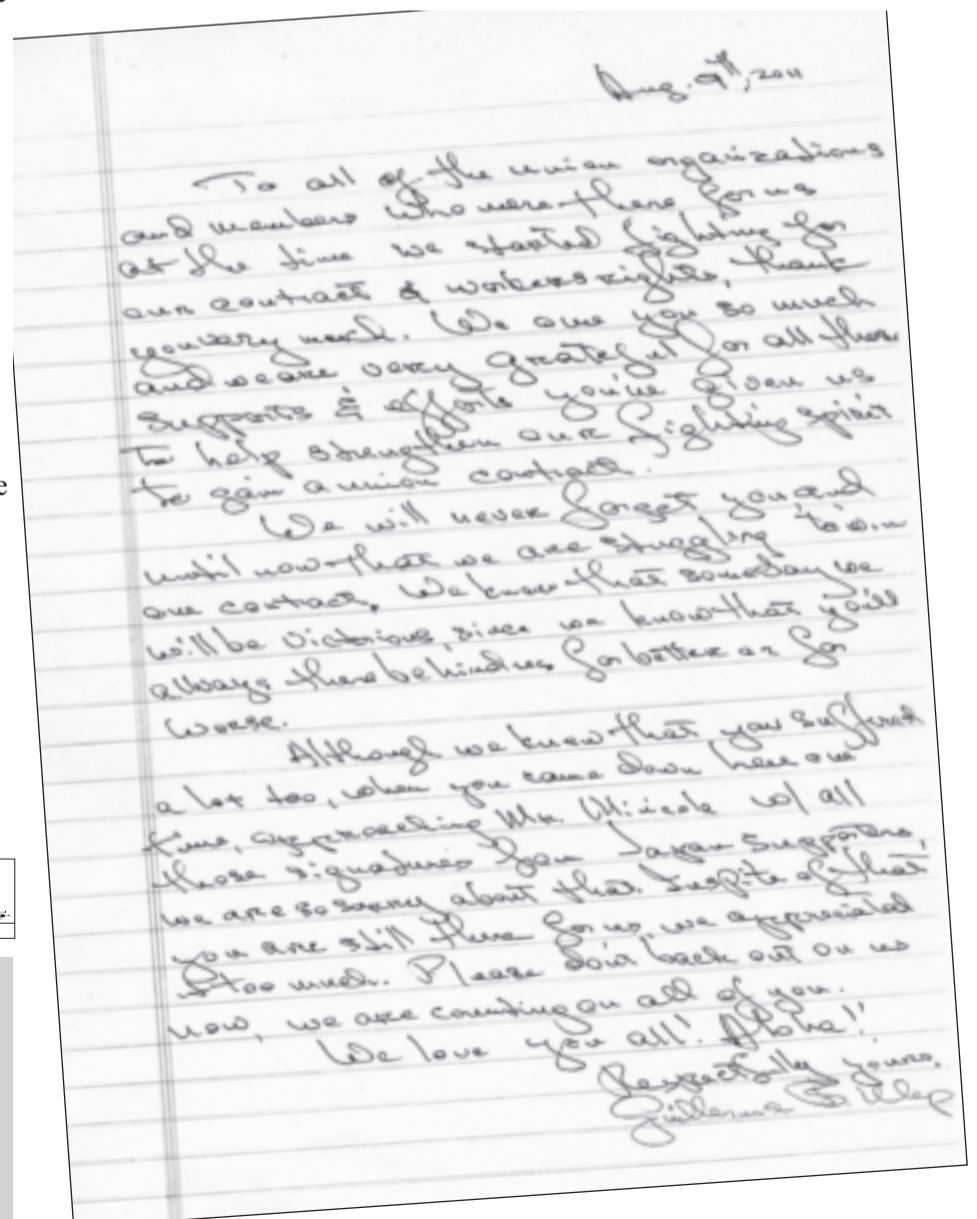 Aug. 9th, 2011
To all of the union organizations
and members who were there for us
at the time we started fighting for
our contract & workers rights, thank
you very much. We owe you so much
and we are very grateful for all those
supports & efforts you've given us
to help strengthen our fighting spirit
to gain a union contract.
We will never forget you and
until now that we are stuggling to win
our contract. We know that someday we
will be victorious, since we know that you'll
always there behind us for better or for
worse.
Although we knew that you suffered
a lot too, when you came down here one
time, approaching Mr. w/ all
those signatures from Japan supporters,
we are so sorry about that. Inspite of that
you are still there for us, we appreciated
it too much. Please don't back out on us
now, we are counting on all of you.
We love you all! Aloha!!
Respectfully yours,
e